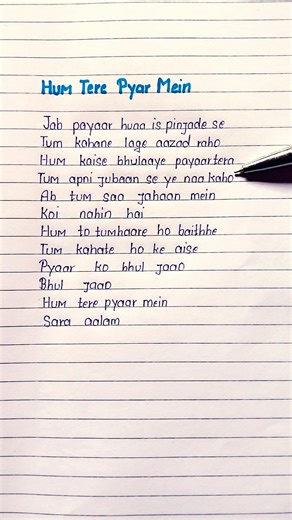 Hum Tere Pyar Mein
Jab payaar huaa is pinjade se
Tum kahane lage aazad raho
Hum kaise bhulaaye payaar tera
Tum apni jubaan se ye naa kaho
Ab tum saa jahaan mein
Koi nahin hai
Hum to tumhaare ho baithhe
Tum kahate ho ke aise
Pyaar ko bhul jaao
Bhul jaao
Hum tere pyaar mein
Sara aalam